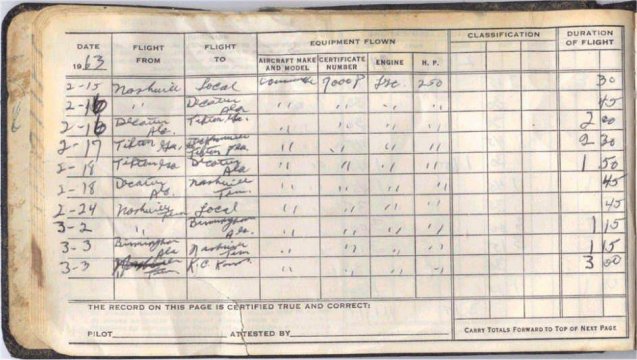 DATE 1963 FLIGHT FROM FLIGHT TO EQUIPMENT FLOWN AIRCRAFT MAKE AND MODEL CERTIFICATE NUMBER ENGINE H. P. CLASSIFICATION DURATION OF FLIGHT
2-15 Nashville Local 7000P Lyc. 250 30
2-16 " Decatur Ala " " " " 45
2-16 Decatur Ala. Tifton Ga. " " " " 2 00
2-17 Tifton Ga. Tifton Ga. " " " " 2 30
2-18 Tifton Ga Decatur Ala " " " " 1 50
2-18 Decatur Ala Nashville Tenn. " " " " 45
2-24 Nashville Tenn Local " " " " 45
3-2 " Birmingham Ala. " " " " 1 15
3-3 Birmingham Ala Nashville Tenn " " " " 1 15
3-3 Nashville Tenn K.C. Kans. " " " " 3 00
THE RECORD ON THIS PAGE IS CERTIFIED TRUE AND CORRECT:
PILOT ATTESTED BY CARRY TOTALS FORWARD TO TOP OF NEXT PAGE